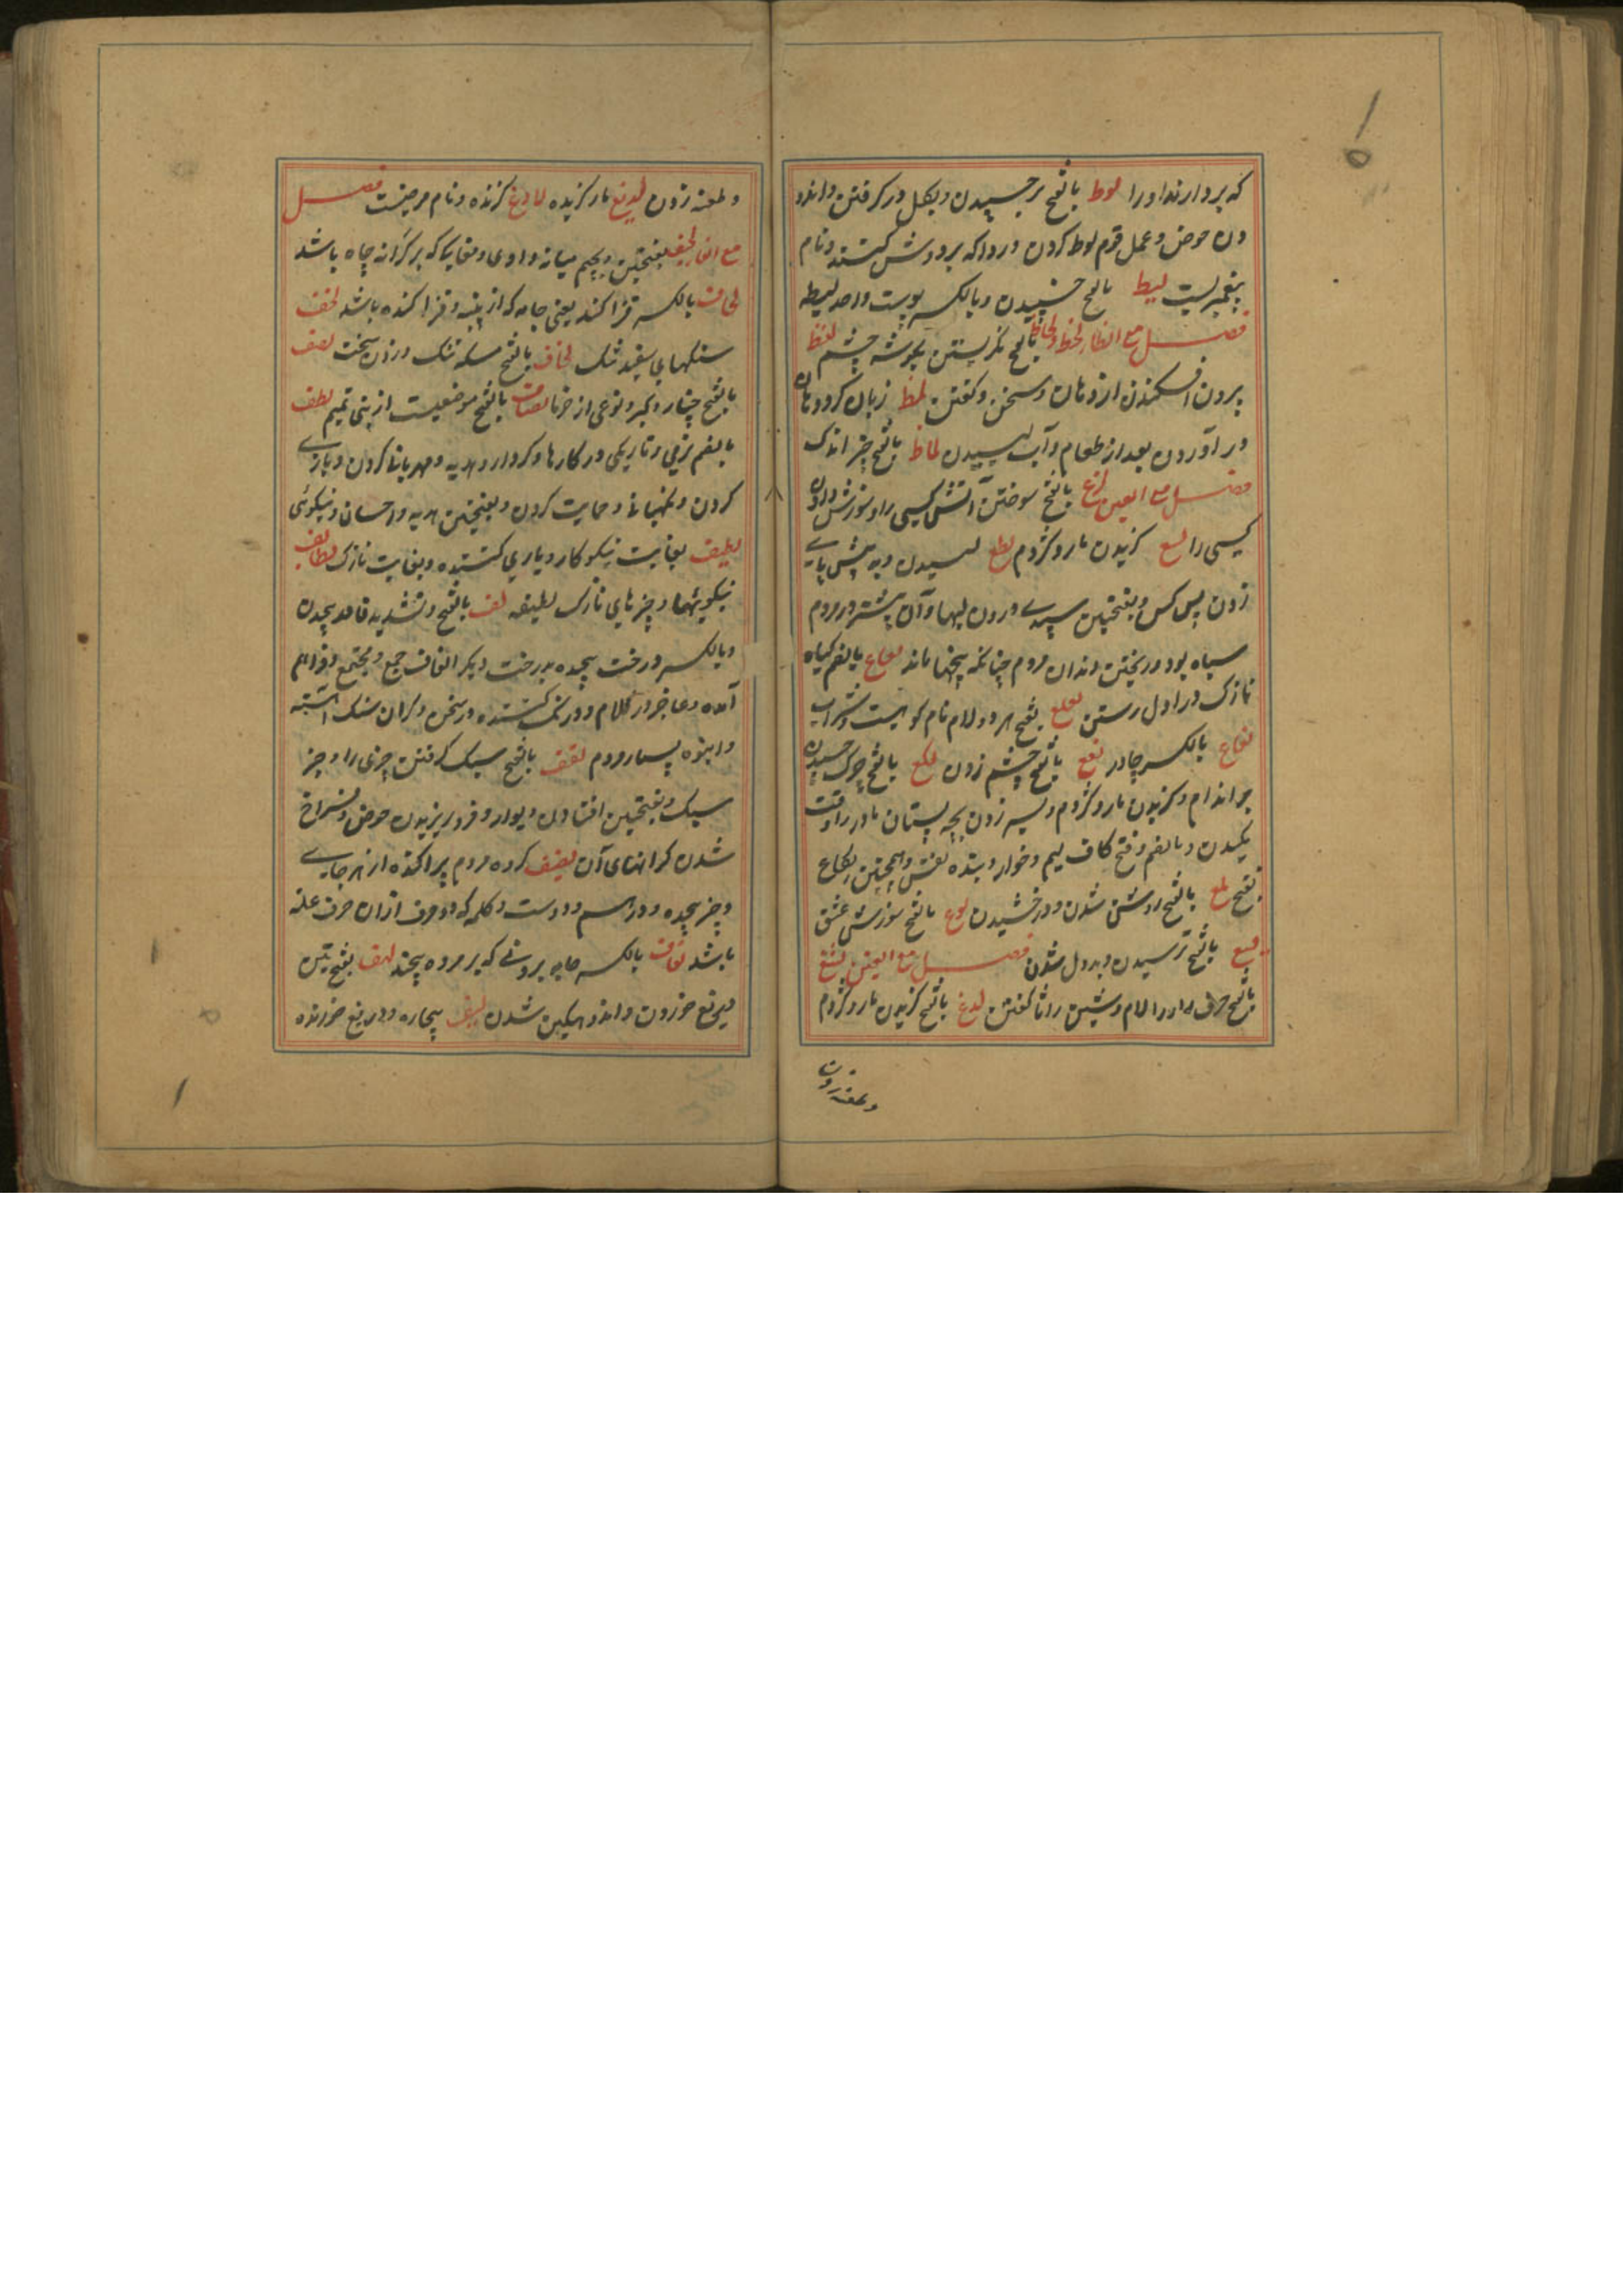 که بردارند او را لوط بالفتح برچسپیدن و بگل در گرفتن و اندو
دن حوض و عمل قوم لوط کردن و ردا که بر دوش کشند و نام
پیغمبریست لیط بالفتح چسپیدن و بالکسر پوست واحد لیطه
فصل مع الظا لحظ و لحاظ بالفتح نگریستن بگوشه چشم لفظ
بیرون افکندن از دهان و سخن و گفتن لمظ زبان گرد دهان
بر آوردن بعد از طعام و آب لیسیدن لماظ بالفتح چیز اندک
فصل مع العین لذع بالفتح سوختن آتش کسی را و سوزش دادن
کسی را لسع گزیدن مار و کژدم لطع لیسیدن و به پیش پای
زدن پس کس و بفتحتین سپیدی درون لبها و آن بیشتر در مردم
سیاه بود و ریختن دندان مردم چنانکه بیخها ماند لعاع بالضم گیاه
نازک در اول رستن لعلع بفتح هر دو لام نام کوهیست و سراب
لفاع بالکسر چادر لقع بالفتح چشم زدن لکع بالفتح چرک چسپیدن
بر اندام و گزیدن مار و کژدم و سر زدن بچه پستان مادر را وقت
مکیدن و بالضم و فتح کاف لئیم و خوار و بنده نفس و همچنین لکاع
بفتح لمع بالفتح روشن شدن و درخشیدن لوع بالفتح سوزش عشق
لیع بالفتح ترسیدن و بددل شدن فصل مع الغین لثغ
بالفتح حرف را را لام و شین را ثا گفتن لدغ بالفتح گزیدن مار و کژدم
و طعنه زدن
و طعنه زدن لدیغ مار گزیده لادغ گزنده و نام مرضیست فصل
مع الفا لجف بفتحتین و جیم میانه وادی و مغاکیکه بر کرانه چاه باشد
لحاف بالکسر قزاکند یعنی جامه که از پنبه و قز آکنده باشد لخف
سنگهای سفید تنک لخاف بالفتح مسکه تنک و زدن سخت لصف
بالفتح خیار و کبر و نوعی از خرما لصاف بالفتح موضعیست از بنی تمیم لطف
بالضم نرمی و تاریکی در کارها و کردار و هدیه و مهربانی کردن و یاری
کردن و نگهبانی و حمایت کردن و بفتحتین هدیه و احسان و نیکوئی
لطیف بغایت نیکو کار و یاری کننده و بغایت نازک لطائف
نیکوئیها و چیزهای نازک لطیفه لف بالفتح و تشدید فا در پیچیدن
و بالکسر درخت پیچیده بدرخت دیگر الفاف جمع و مجتمع و فراهم
آمده و عاجز در کلام و درنگ کننده در سخن و گران سنگ آهسته
و انبوه بسیار مردم لقف بالفتح سبک گرفتن چیزی را و چیز
سبک و بفتحتین افتادن دیوار و فرو ریزیدن حوض و فراخ
شدن کرانهای آن لفیف گروه مردم پراکنده از هر جای
و چیز پیچیده و در هم و دوست و کلمه که دو حرف از ان حرف عله
باشد لفاف بالکسر جامه بیرونی که بر مرده پیچند لهف بفتحتین
دریغ خوردن و اندوهگین شدن لهیف بیچاره و دریغ خورنده